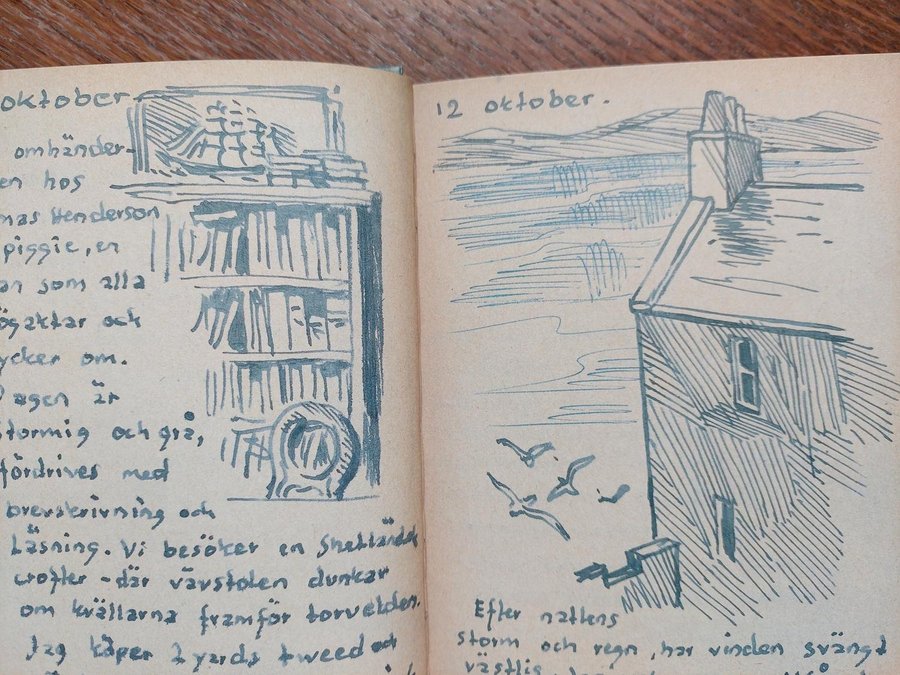 oktober
omhänder-
en hos
mas Henderson
piggie, en
an som alla
ögaktar och
ycker om.
Dagen är
stormig och grå,
fördrives med
brevskrivning och
Läsning. Vi besöker en Shetländsk
crofter - där vävstolen dunkar
om kvällarna framför torvelden.
Jag köper 7 yards tweed och
12 oktober.
Efter nattens
storm och regn, har vinden svängt
västlig